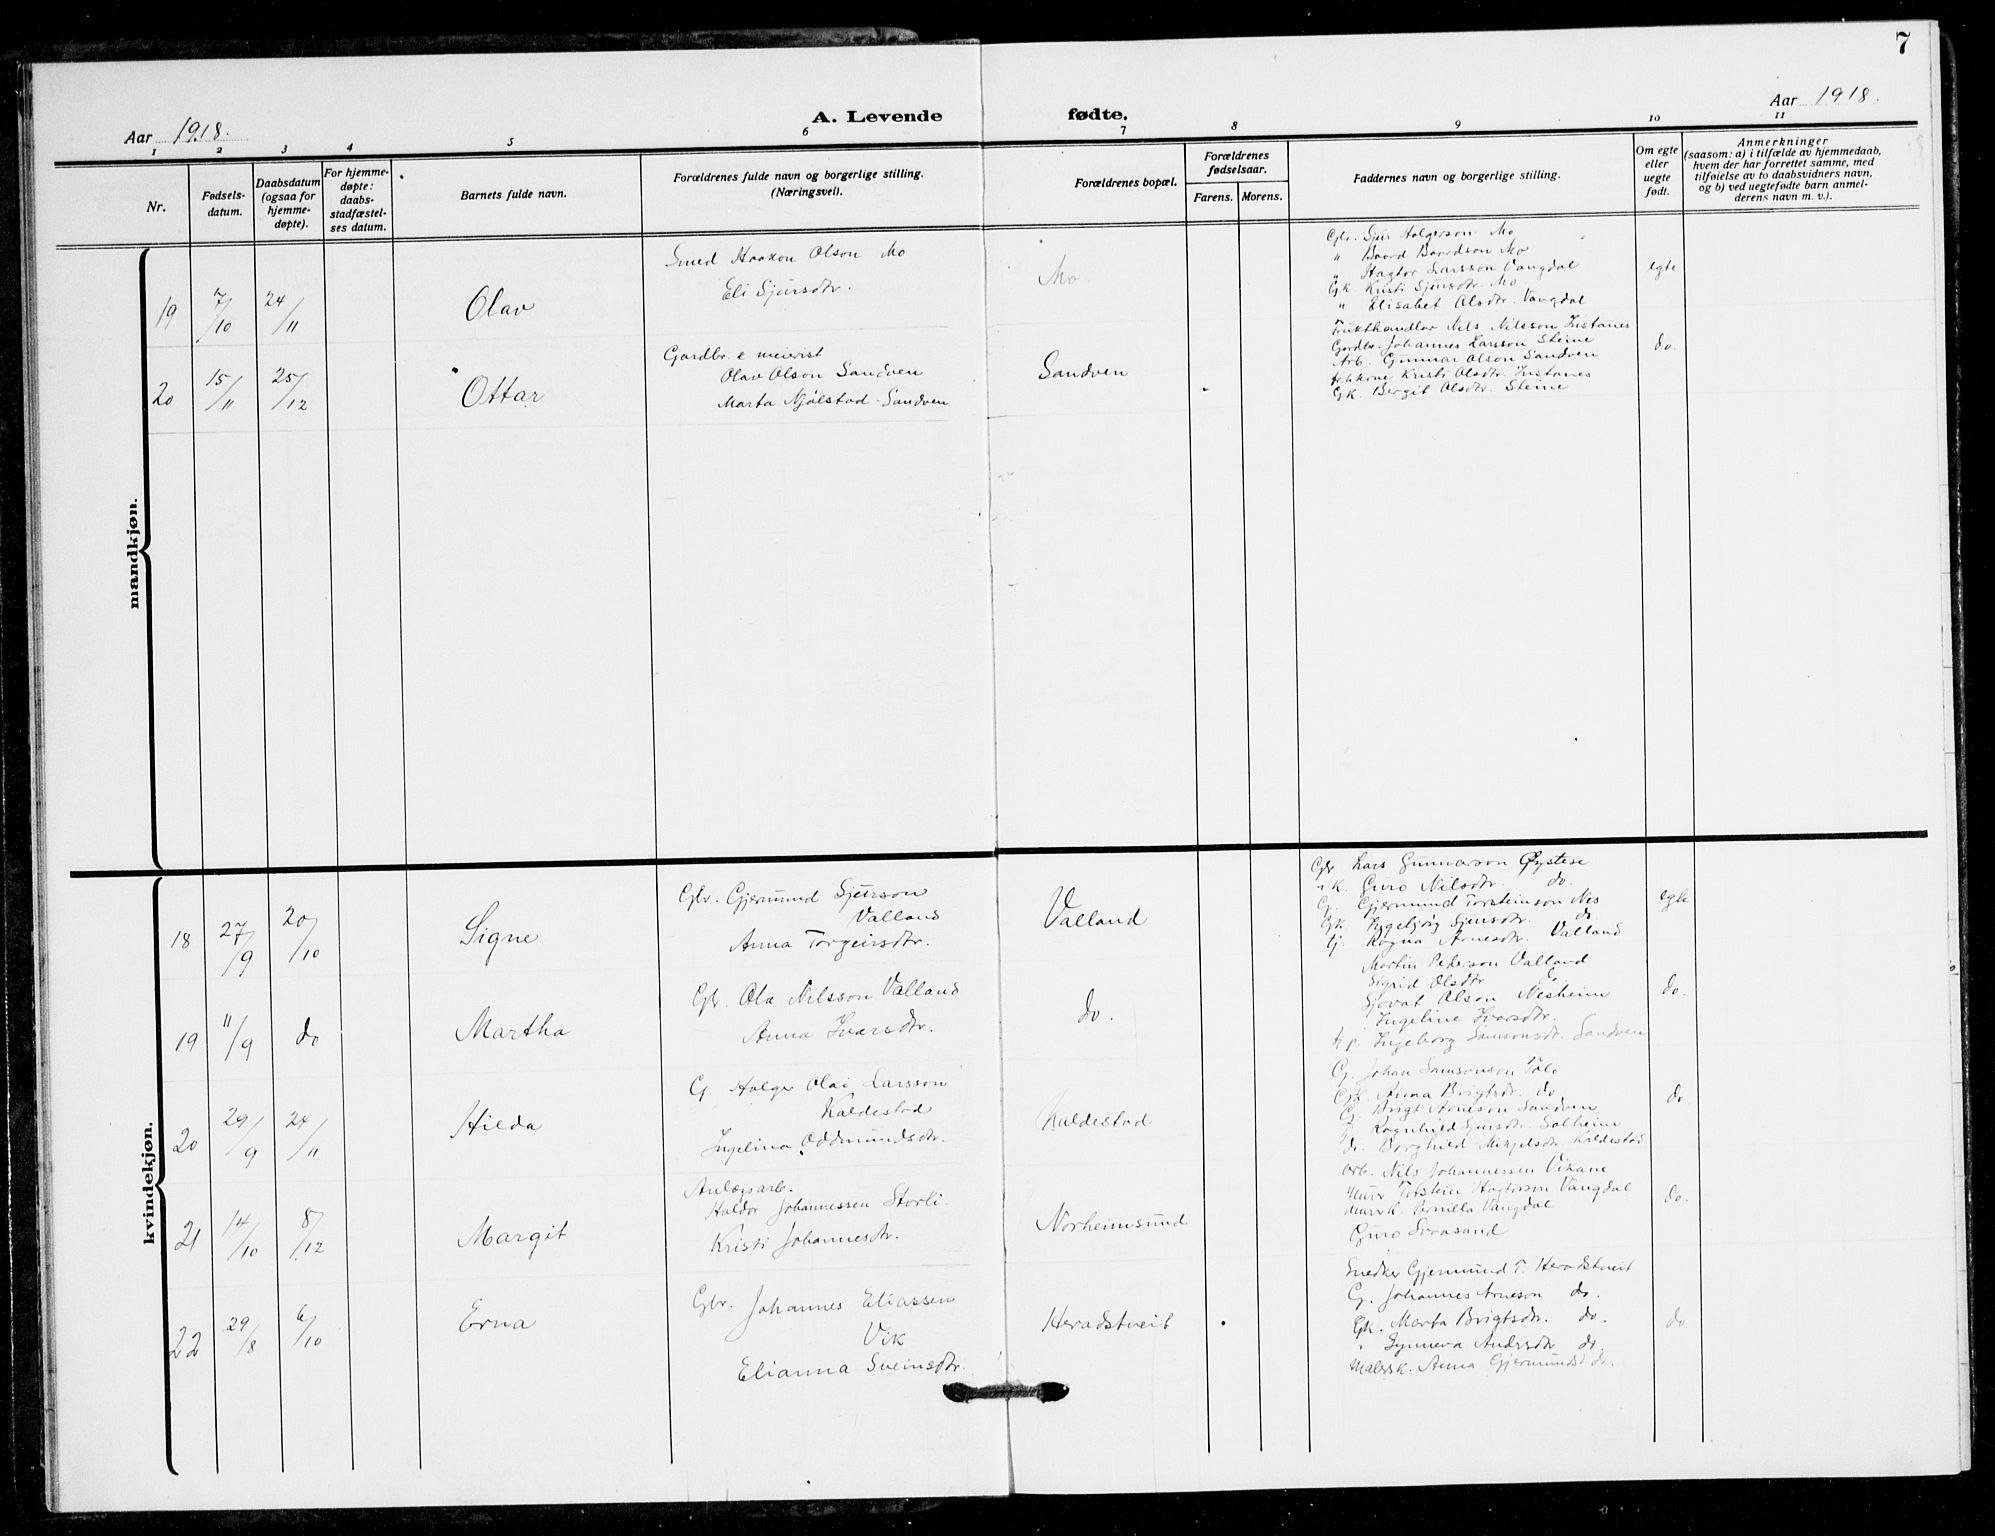 7
Aar 1918.
A. Levende fødte.
Aar 1918.
1 2 3 4 5 6 7 8 9 10 11
Nr.
Fødsels-
datum.
Daabsdatum
(ogsaa for
hjemme-
døpte).
For hjemme-
døpte:
daabs-
stadfæstel-
ses datum.
Barnets fulde navn.
Forældrenes fulde navn og borgerlige stilling.
(Næringsvei).
Forældrenes bopæl.
Forældrenes
fødselsaar.
Farens. Morens.
Faddernes navn og borgerlige stilling.
Om egte
eller
uegte
født.
Anmerkninger
(saasom: a) i tilfælde av hjemmedaab,
hvem der har forrettet samme, med
tilføielse av to daabsvidners navn,
og b) ved uegtefødte barn anmel-
derens navn m. v.).
mandkjøn.
19 7/10 24/11 Olav
Smed Haakon Olson Mo
Eli Sjursdtr.
Mo
Gbr. Sjur Holgerson Mo
" Baard Baardson Mo
" Hagtor Larsson Vangdal
Gk. Kristi Sjursdtr. Mo
" Elisabet Olsdtr. Vangdal
egte
20 15/11 25/12 Ottar
Gardbr. & meierist
Olav Olson Sandven
Marta Njølstad-Sandven
Sandven
Frukthandlar Nils Nilsson Instanes
Gardbr. Johannes Larsson Steine
Arb. Gunnar Olson Sandven
fr.h.kone Kristi Olsdtr. Instanes
Gk. Bergit Olsdtr. Steine
do.
kvindekjøn.
18 27/9 20/10 Signe
Gbr. Gjermund Sjurson
Valland
Anna Torgeirsdtr.
Valland
Gbr Lars Gunnarson Øystese
" k. Guro Nilsdtr. do.
G. Gjermund Torsteinson Nes
Gk. Ingebjørg Sjursdtr. do.
tj. Ragna Arnesdtr. Valland
egte
19 11/9 do Martha
Gbr. Ola Nilsson Valland
Anna Ivarsdtr.
do.
Martin Pederson Valland
Sigrid Olsdtr do
Sjovat Olson Nesheim
Ingeline Ivarsdtr.
Ingeborg Samsonsdtr. Sandven
do.
20 29/9 24/11 Hilda
G Holger Olai Larsson
Kaldestad
Ingelina Oddmundsdtr.
Kaldestad
G. Johan Samsonson Tolo
Gk. Anna Brigtsdtr. do
G. Brigt Arneson Sandven
Ragnhild Sjursdtr. Solheim
Borghild Mikjelsdtr Kaldestad
do
21 14/10 8/12 Margit
Anlægsarb.
Haldor Johannessen Storli.
Kristi Johannesdtr.
Norheimsund
Arb. Nils Johannessen Vikane
Murer Torstein Hagtorson Vangdal
Murerk. Pernilla Vangdal
Guro Svaasand
do.
22 29/8 6/10 Erna
Gbr. Johannes Eliassen
Vik
Elianna Sveinsdtr.
Heradstveit
Snedker Gjermund T. Heradstveit
G. Johannes Arneson do.
Gk. Marta Brigtsdtr. do.
" Synneva Andersdtr do.
Malersk. Anna Gjermundsd do.
do